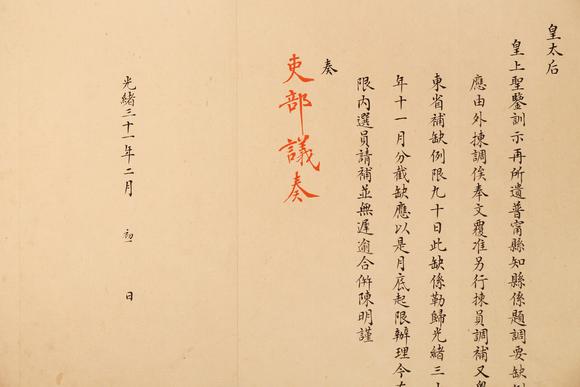 皇太后
皇上聖鑒訓示再所遺普甯縣知縣係題調要缺例
應由外揀調俟奉文覆准另行揀員調補又
東省補缺例限九十日此缺係勒歸光緒三十
年十一月分截缺應以是月底起限辦理今在
限內選員請補並無遲逾合併陳明謹
奏
吏部議奏
光緒三十一年二月 初 日